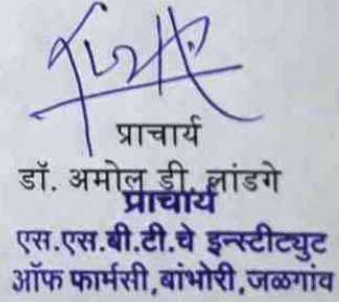 प्राचार्य
डॉ. अमोल डी. लांडगे
प्राचार्य
एस.एस.बी.टी.चे इन्स्टीट्युट
ऑफ फार्मसी,बांभोरी,जळगांव